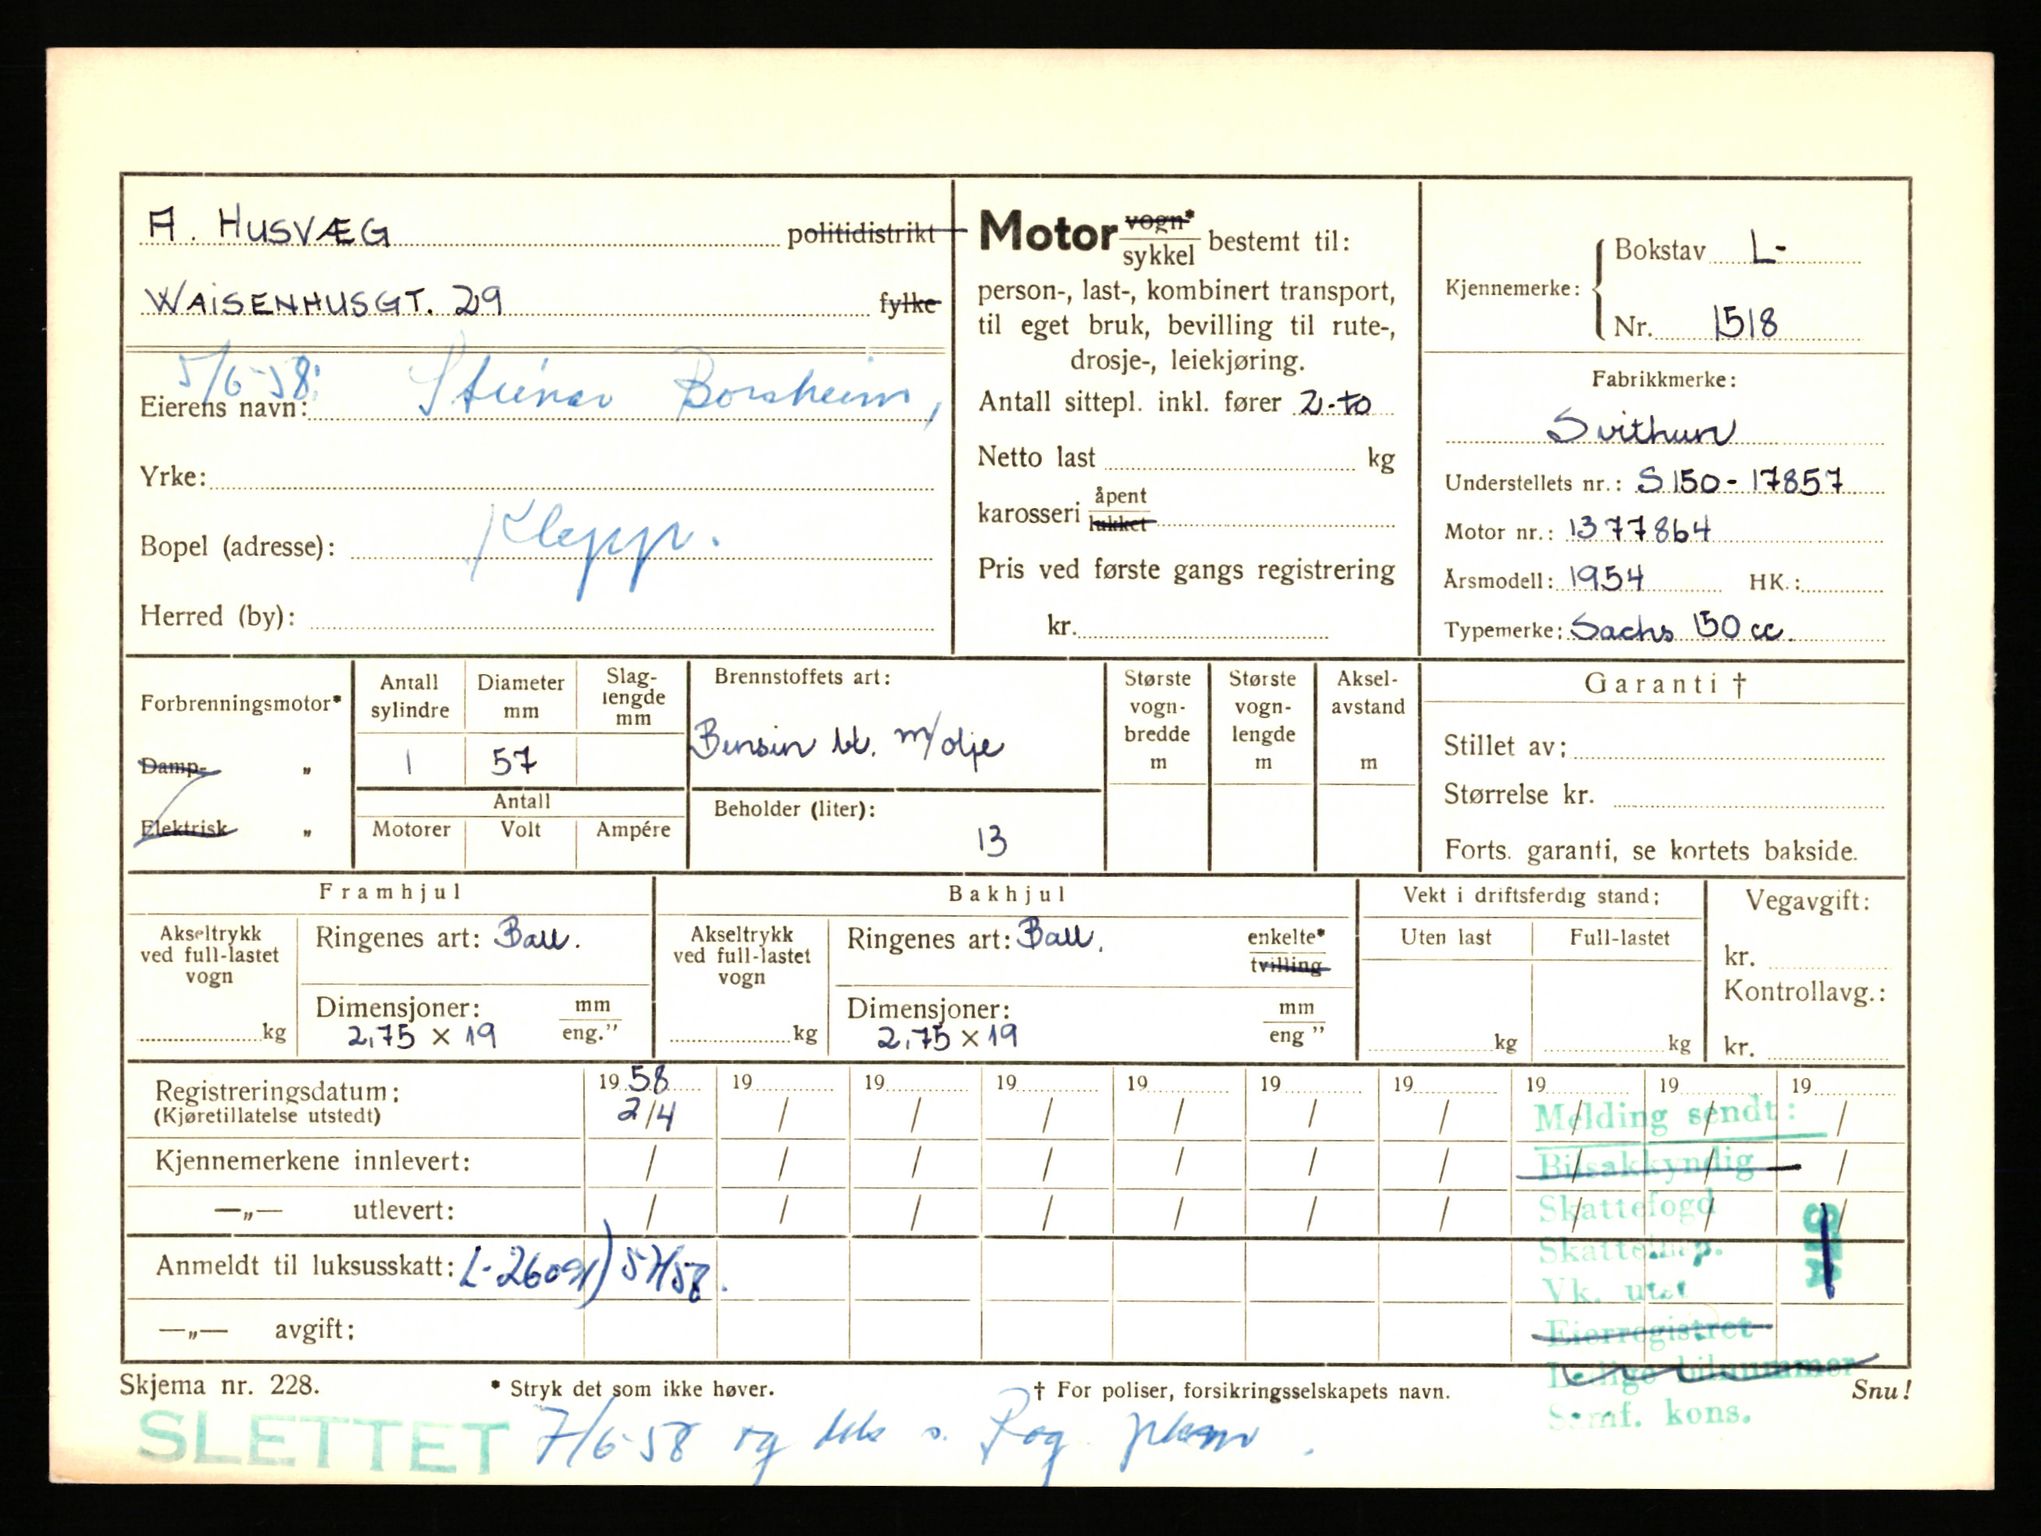 A. HUSVÆG politidistrikt
WAISENHUSGT. 29 fylke
5/6-58:
Eierens navn: Steinar Borsheim,
Yrke:
Bopel (adresse): Klepp.
Herred (by):
Motor vogn* / sykkel bestemt til:
person-, last-, kombinert transport,
til eget bruk, bevilling til rute-,
drosje-, leiekjøring.
Antall sittepl. inkl. fører 2-to
Netto last kg
karosseri åpent / lukket
Pris ved første gangs registrering
kr.
Kjennemerke: Bokstav L-
Nr. 1518
Fabrikkmerke:
Svithun
Understellets nr.: S 150-17857
Motor nr.: 1377864
Årsmodell: 1954 HK.:
Typemerke: Sachs 150 cc.
Forbrenningsmotor*
Damp- „
Elektrisk „
Antall sylindre
1
Diameter mm
57
Slaglengde mm
Antall
Motorer Volt Ampére
Brennstoffets art:
Bensin bl. m/olje
Beholder (liter):
13
Største vognbredde m
Største vognlengde m
Akselavstand m
Garanti †
Stillet av:
Størrelse kr.
Forts. garanti, se kortets bakside.
Framhjul
Akseltrykk ved full-lastet vogn
kg
Ringenes art: Ball.
Dimensjoner: mm / eng.”
2,75 × 19
Bakhjul
Akseltrykk ved full-lastet vogn
kg
Ringenes art: Ball. enkelte* / tvilling
Dimensjoner: mm / eng ”
2,75 × 19
Vekt i driftsferdig stand:
Uten last Full-lastet
kg kg
Vegavgift:
kr.
Kontrollavg.:
kr.
Registreringsdatum: 1958 19 19 19 19 19 19 19 19 19
(Kjøretillatelse utstedt) 2/4 / / / / / / / / /
Kjennemerkene innlevert: / / / / / / / / / /
—„— utlevert: / / / / / / / / / /
Anmeldt til luksusskatt: L-26091) 5/7/58.
—„— avgift:
Melding sendt:
Bilsakkyndig
Skattefogd
Skatteinsp.
Vk. utst
Eierregistret
Ledige bilnummer
Samf. kons.
Skjema nr. 228. * Stryk det som ikke høver. † For poliser, forsikringsselskapets navn. Snu!
SLETTET 7/6-58 og